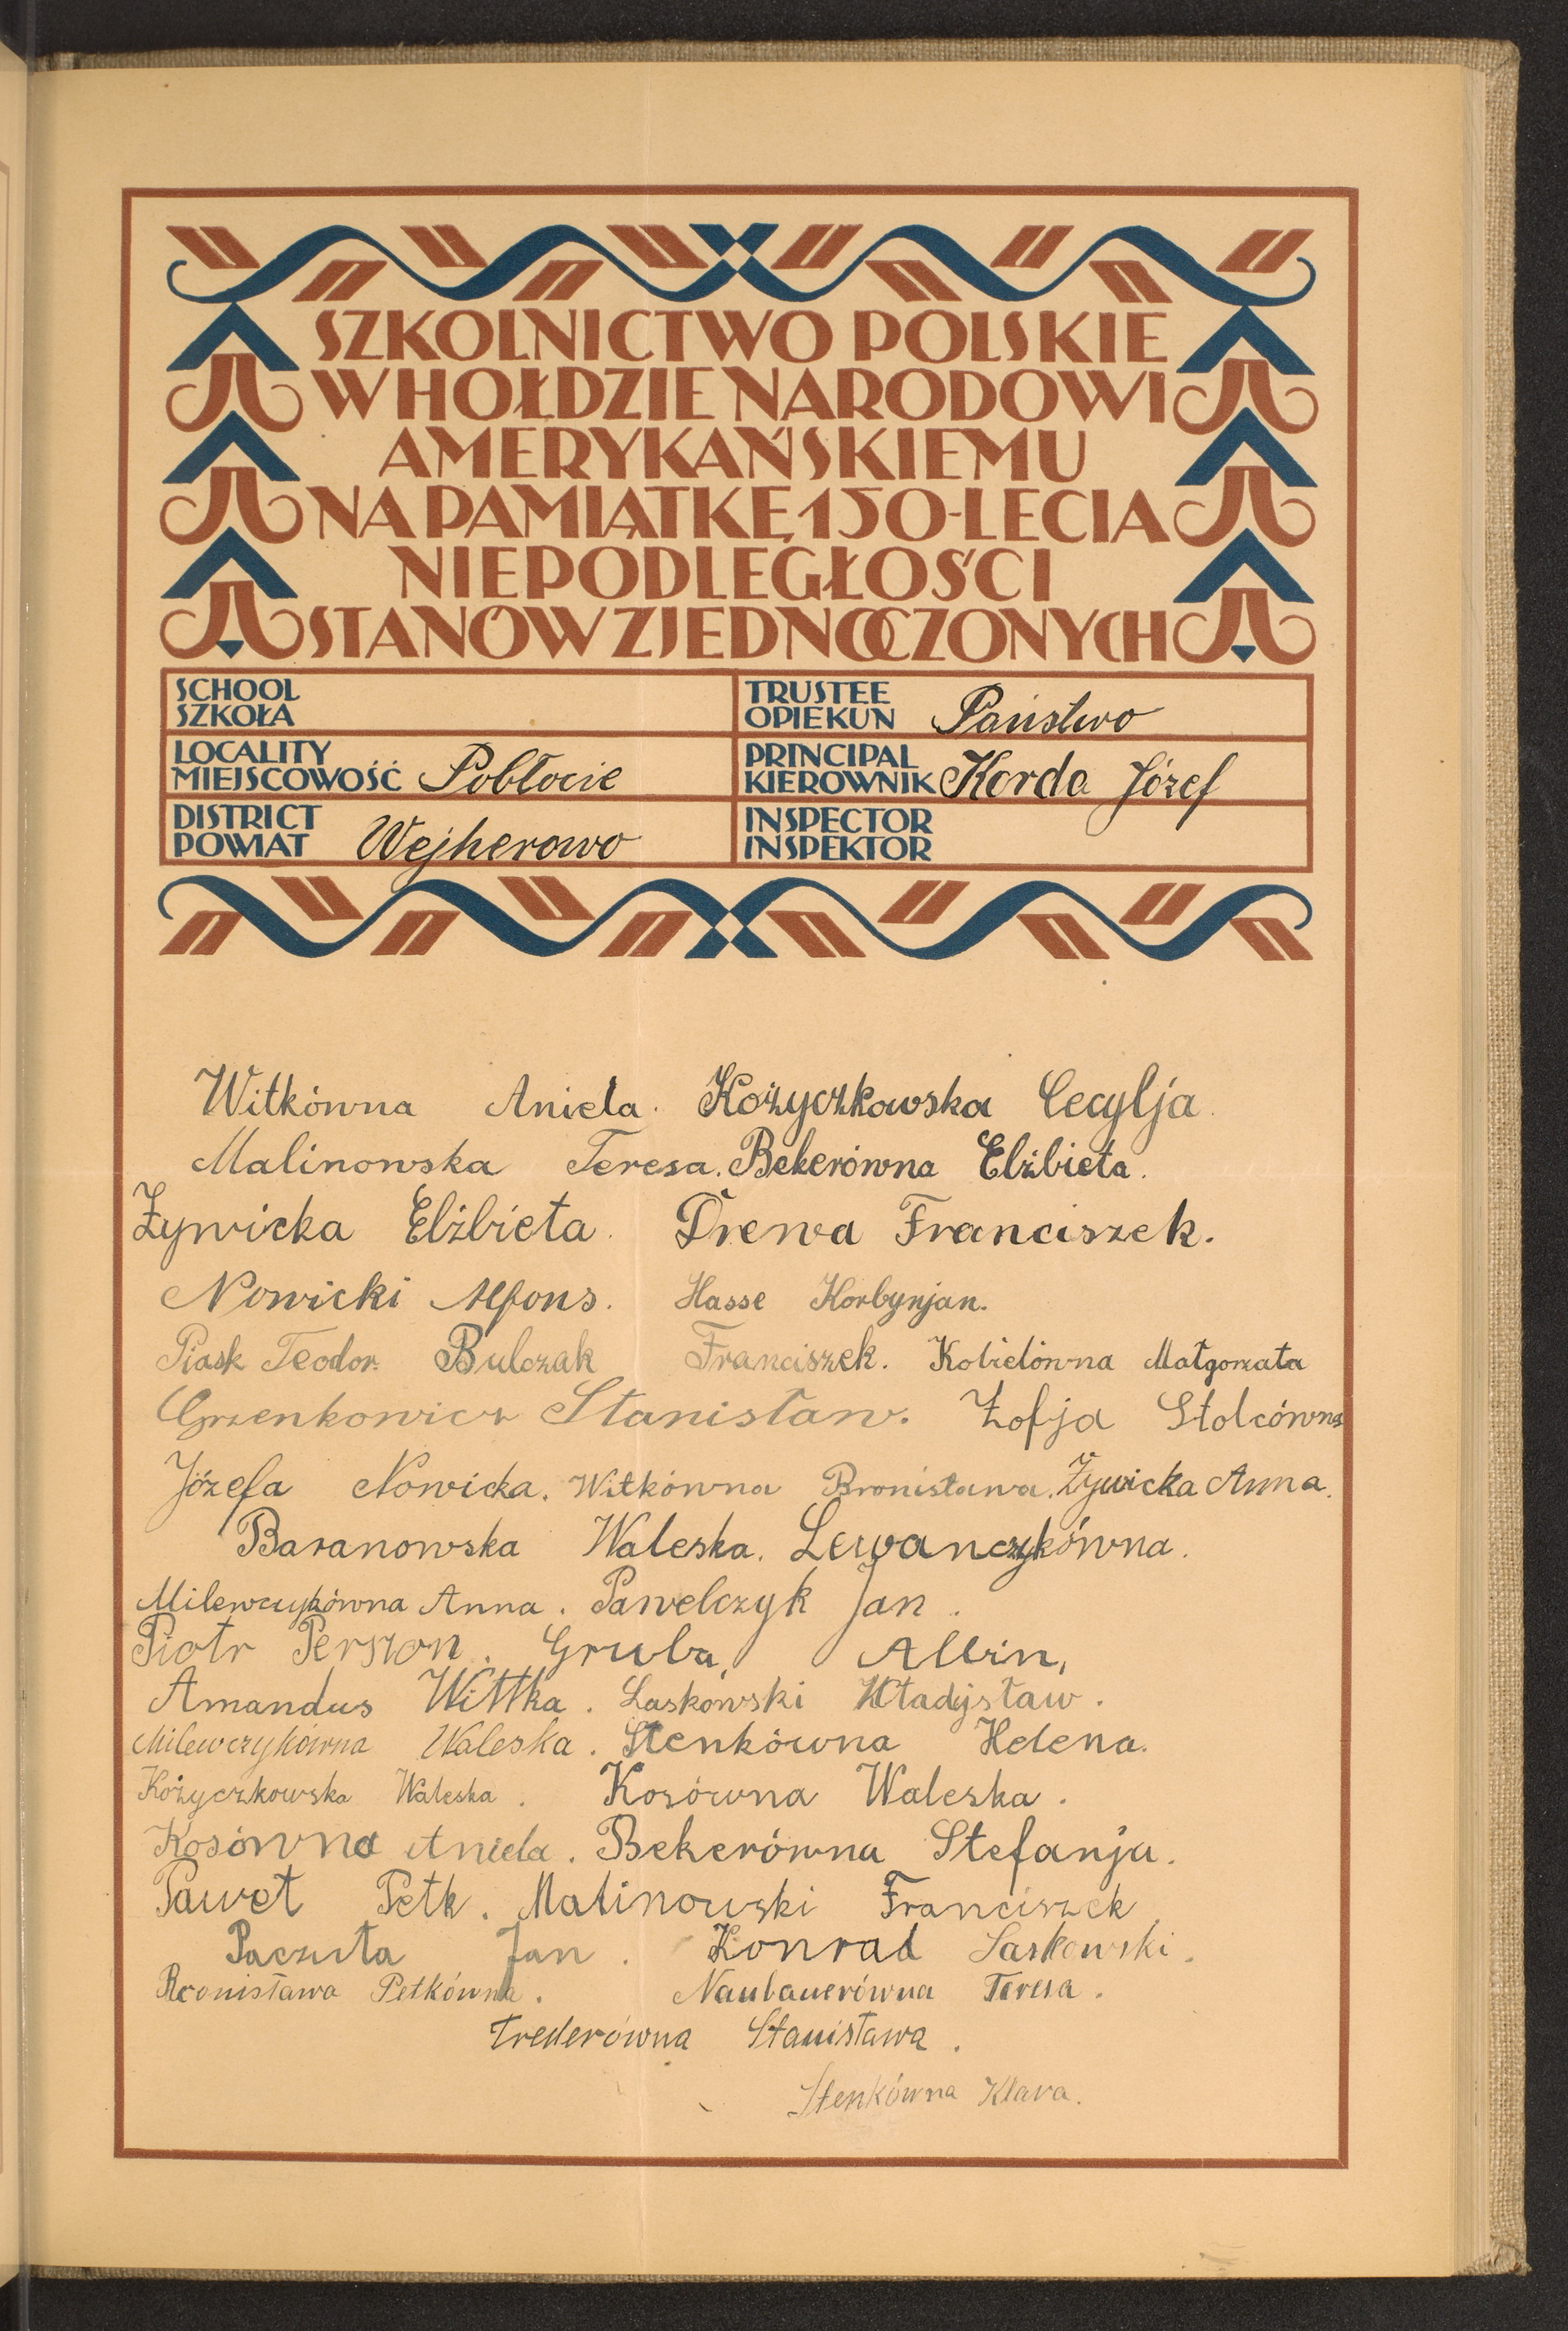 SZKOLNICTWO POLSKIE
W HOŁDZIE NARODOWI
AMERYKAŃSKIEMU
NA PAMIĄTKĘ 150-LECIA
NIEPODLEGŁOŚCI
STANÓW ZJEDNOCZONYCH
SCHOOL
SZKOŁA
TRUSTEE
OPIEKUN Państwo
LOCALITY
MIEJSCOWOŚĆ Pobłocie
PRINCIPAL
KIEROWNIK Korda Józef
DISTRICT
POWIAT Wejherowo
INSPECTOR
INSPEKTOR
Witkówna Aniela. Kożyczkowska Cecylja.
Malinowska Teresa. Bekerówna Elżbieta.
Żywicka Elżbieta. Drewa Franciszek.
Nowicki Alfons. Hasse Korbynjan.
Piask Teodor. Bulczak Franciszek. Kobielówna Małgorzata
Grzenkowicz Stanisław. Zofja Stolcówna
Józefa Nowicka. Witkówna Bronisława. Żywicka Anna.
Baranowska Waleska. Lewanczykówna.
Milewczykówna Anna. Pawelczyk Jan.
Piotr Perszon. Gruba, Albin,
Amandus Wittka. Laskowski Władysław.
Milewczykówna Waleska. Stenkówna Helena.
Kożyczkowska Waleska. Kosówna Waleska.
Kosówna Aniela. Bekerówna Stefanja.
Paweł Petk. Malinowski Franciszek
Paczuła Jan. Konrad Laskowski.
Bronisława Petkówna. Naubauerówna Teresa.
Trederówna Stanisława.
Stenkówna Klara.